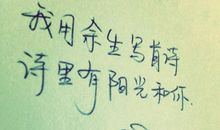 我用余生写首诗
诗里有阳光和你.